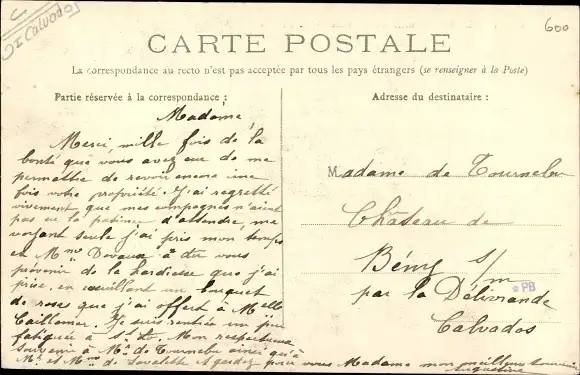 C
Calvados
600
CARTE POSTALE
La correspondance au recto n'est pas acceptée par tous les pays étrangers (se renseigner à la Poste)
Partie réservée à la correspondance :
Madame,
Merci, mille fois de la
bonté que vous avez eue de me
permettre de revoir encore une
fois votre propriété. J'ai regretté
vivement que mes compagnes n'aient
pas eu la patience d'attendre, me
voyant seule j'ai pris mon temps
et Mme Devaux a dû vous
prévenir de la hardiesse que j'ai
prise, en cueillant un bouquet
de roses que j'ai offert à Melle
Caillomer. Je suis rentrée un peu
fatiguée à Mon respectueux
souvenir à Mr de Tournebu ainsi qu'à
Mr et Mme de pour vous Madame mon meilleur souvenir
Augustine
Adresse du destinataire :
Madame de Tournebu
Château de
Bény s/m
PB
par la Délivrande
Calvados